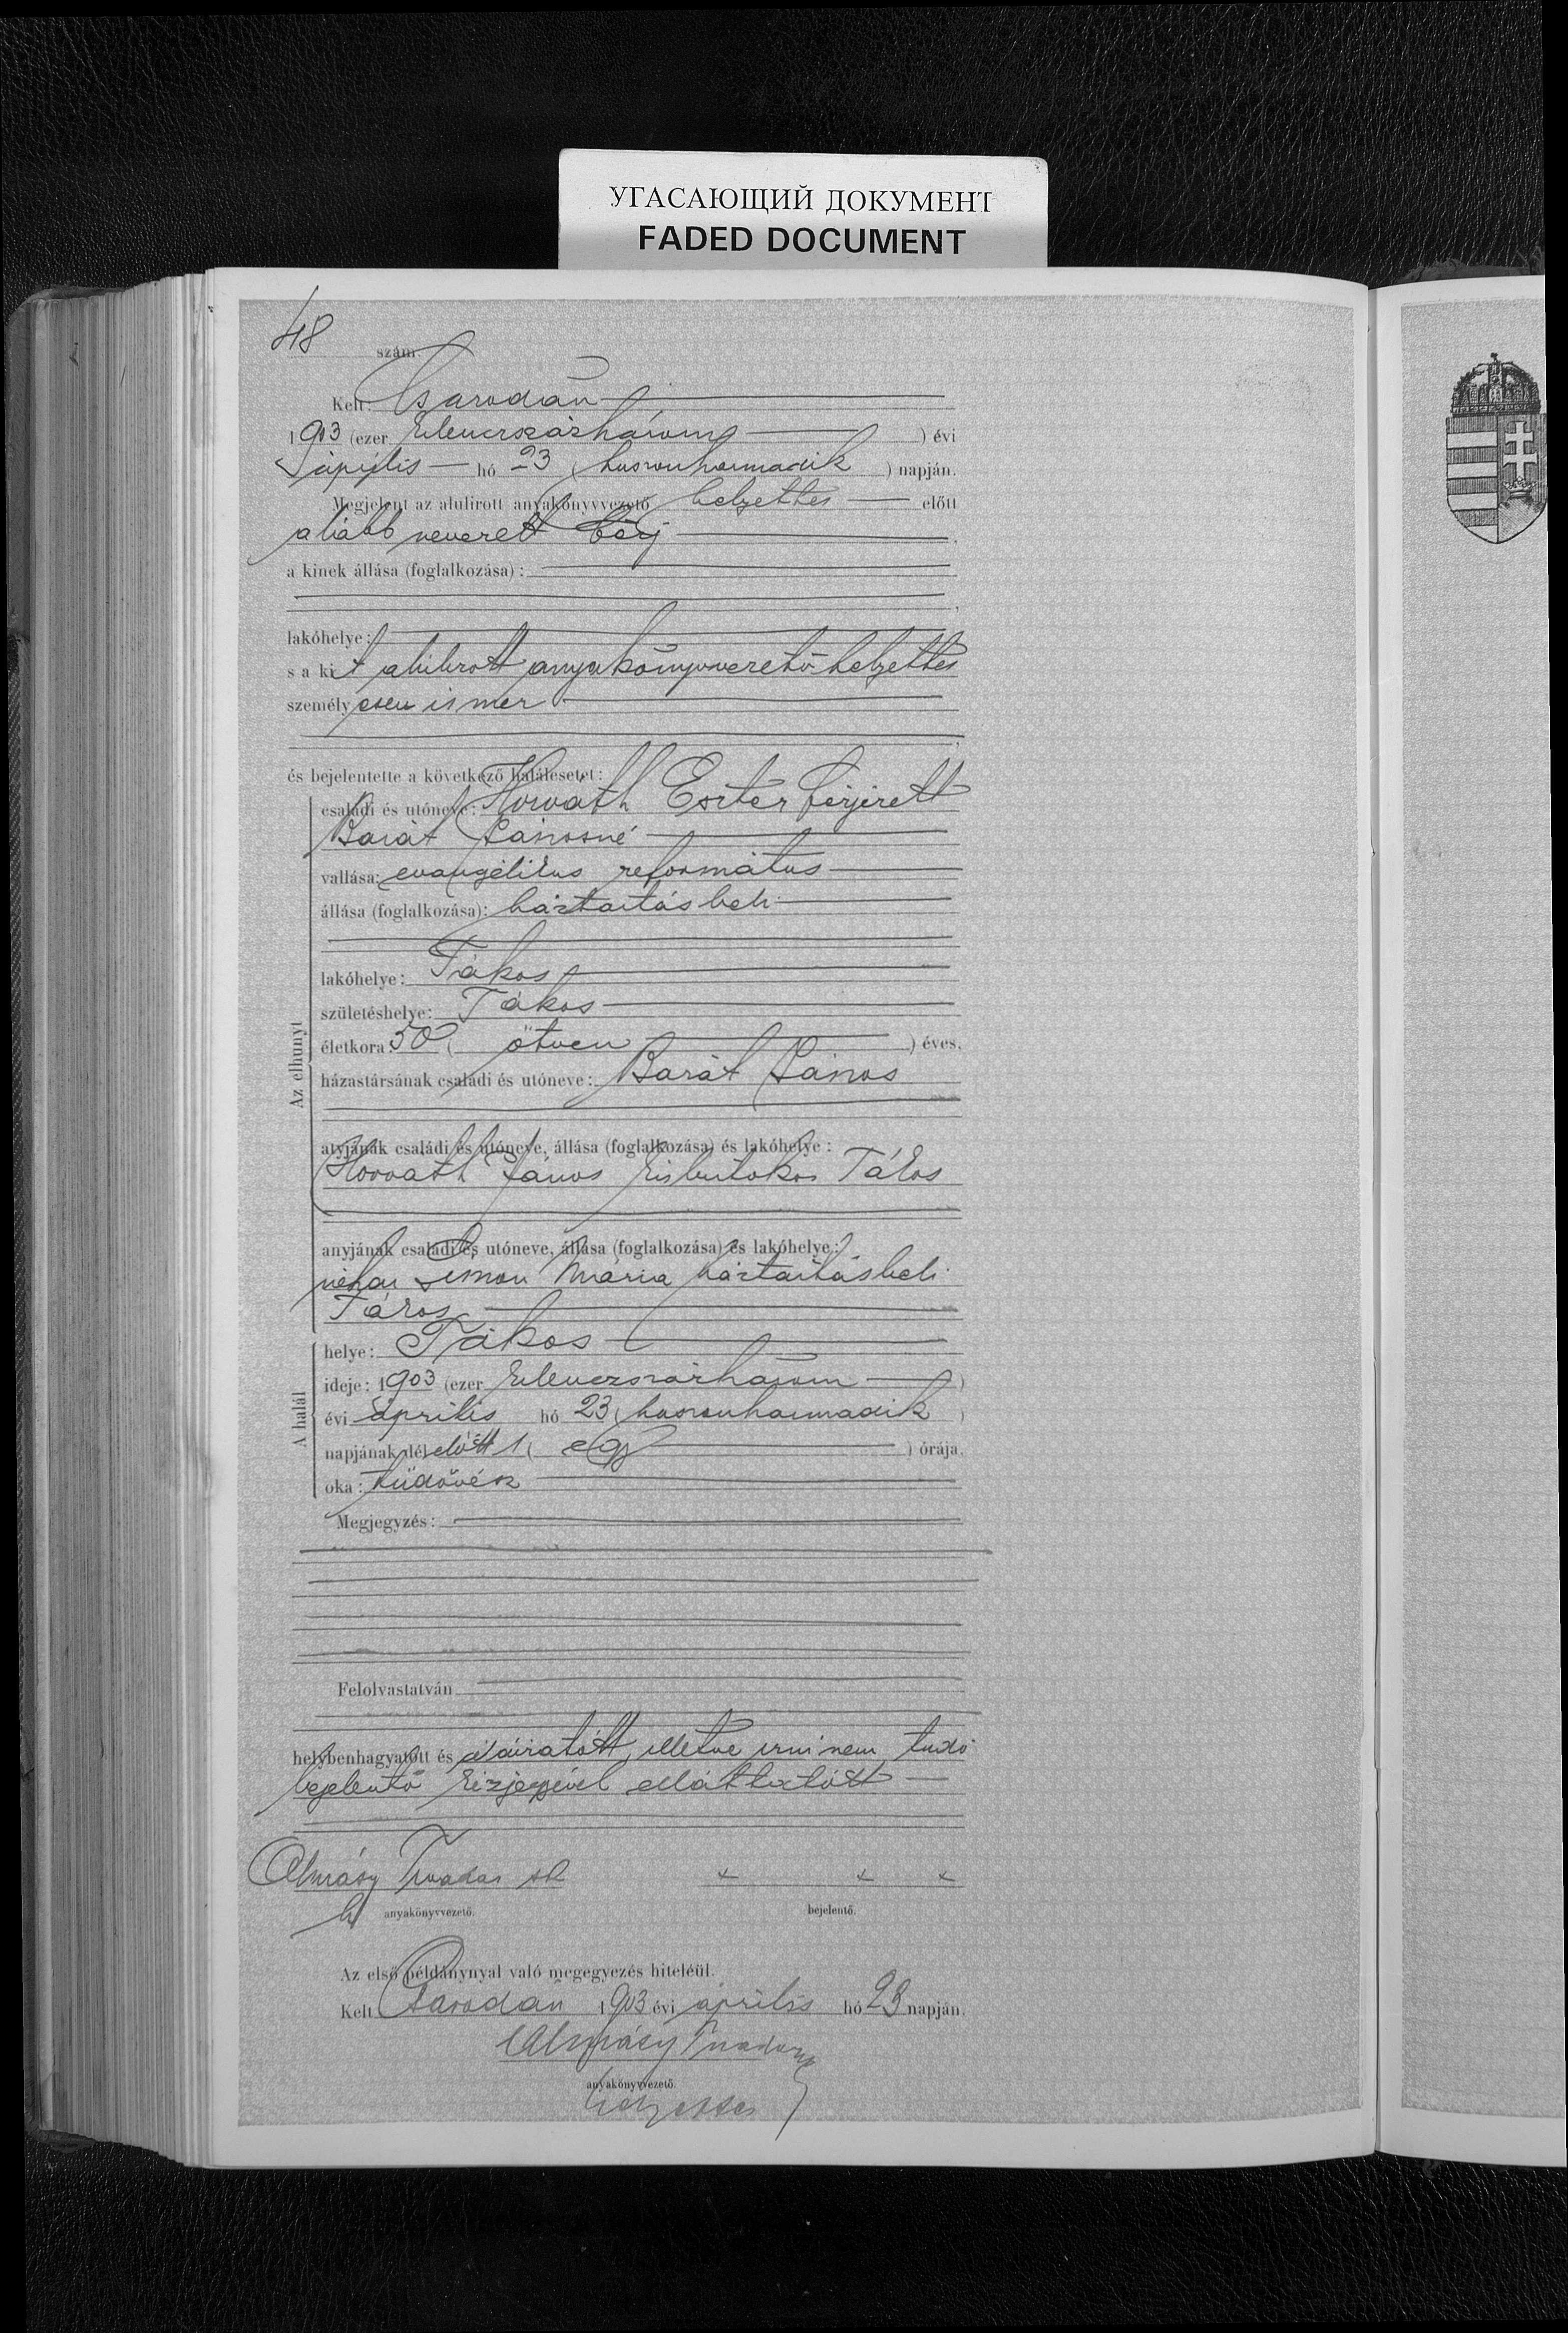 УГАСАЮЩИЙ ДОКУМЕНТ
FADED DOCUMENT
48 szám.
Kelt: Csarodán
1903 (ezer kilenczszázhárom) évi
április hó 23 (huszonharmadik) napján.
Megjelent az alulirott anyakönyvvezető helyettes előtt
alább nevezett férj
a kinek állása (foglalkozása):
lakóhelye:
s a kit alulirott anyakönyvvezető helyettes
személyesen ismer
és bejelentette a következő halálesetet:
Az elhunyt
családi és utóneve: Horváth Eszter férjezett
Barát Jánosné
vallása: evangélikus református
állása (foglalkozása): háztartásbeli
lakóhelye: Tákos
születéshelye: Tákos
életkora: 50 (ötven) éves.
házastársának családi és utóneve: Barát János
atyjának családi és utóneve, állása (foglalkozása) és lakóhelye:
Horváth János kisbirtokos Tákos
anyjának családi és utóneve, állása (foglalkozása) és lakóhelye:
néhai Simon Mária háztartásbeli
Tákos
A halál
helye: Tákos
ideje: 1903 (ezer kilenczszázhárom)
évi április hó 23 (huszonharmadik)
napjának délelőtt 1 (egy) órája.
oka: tüdővész
Megjegyzés:
Felolvastatván
helybenhagyatott és aláiratott, illetve irni nem tudó
bejelentő kézjegyével elláttatott
Almásy Tivadar sk
h anyakönyvvezető.
+ + + bejelentő.
Az első példánynyal való megegyezés hiteléül.
Kelt Csarodán 1903 évi április hó 23 napján.
Almásy Tivadar
anyakönyvvezető.
helyettes